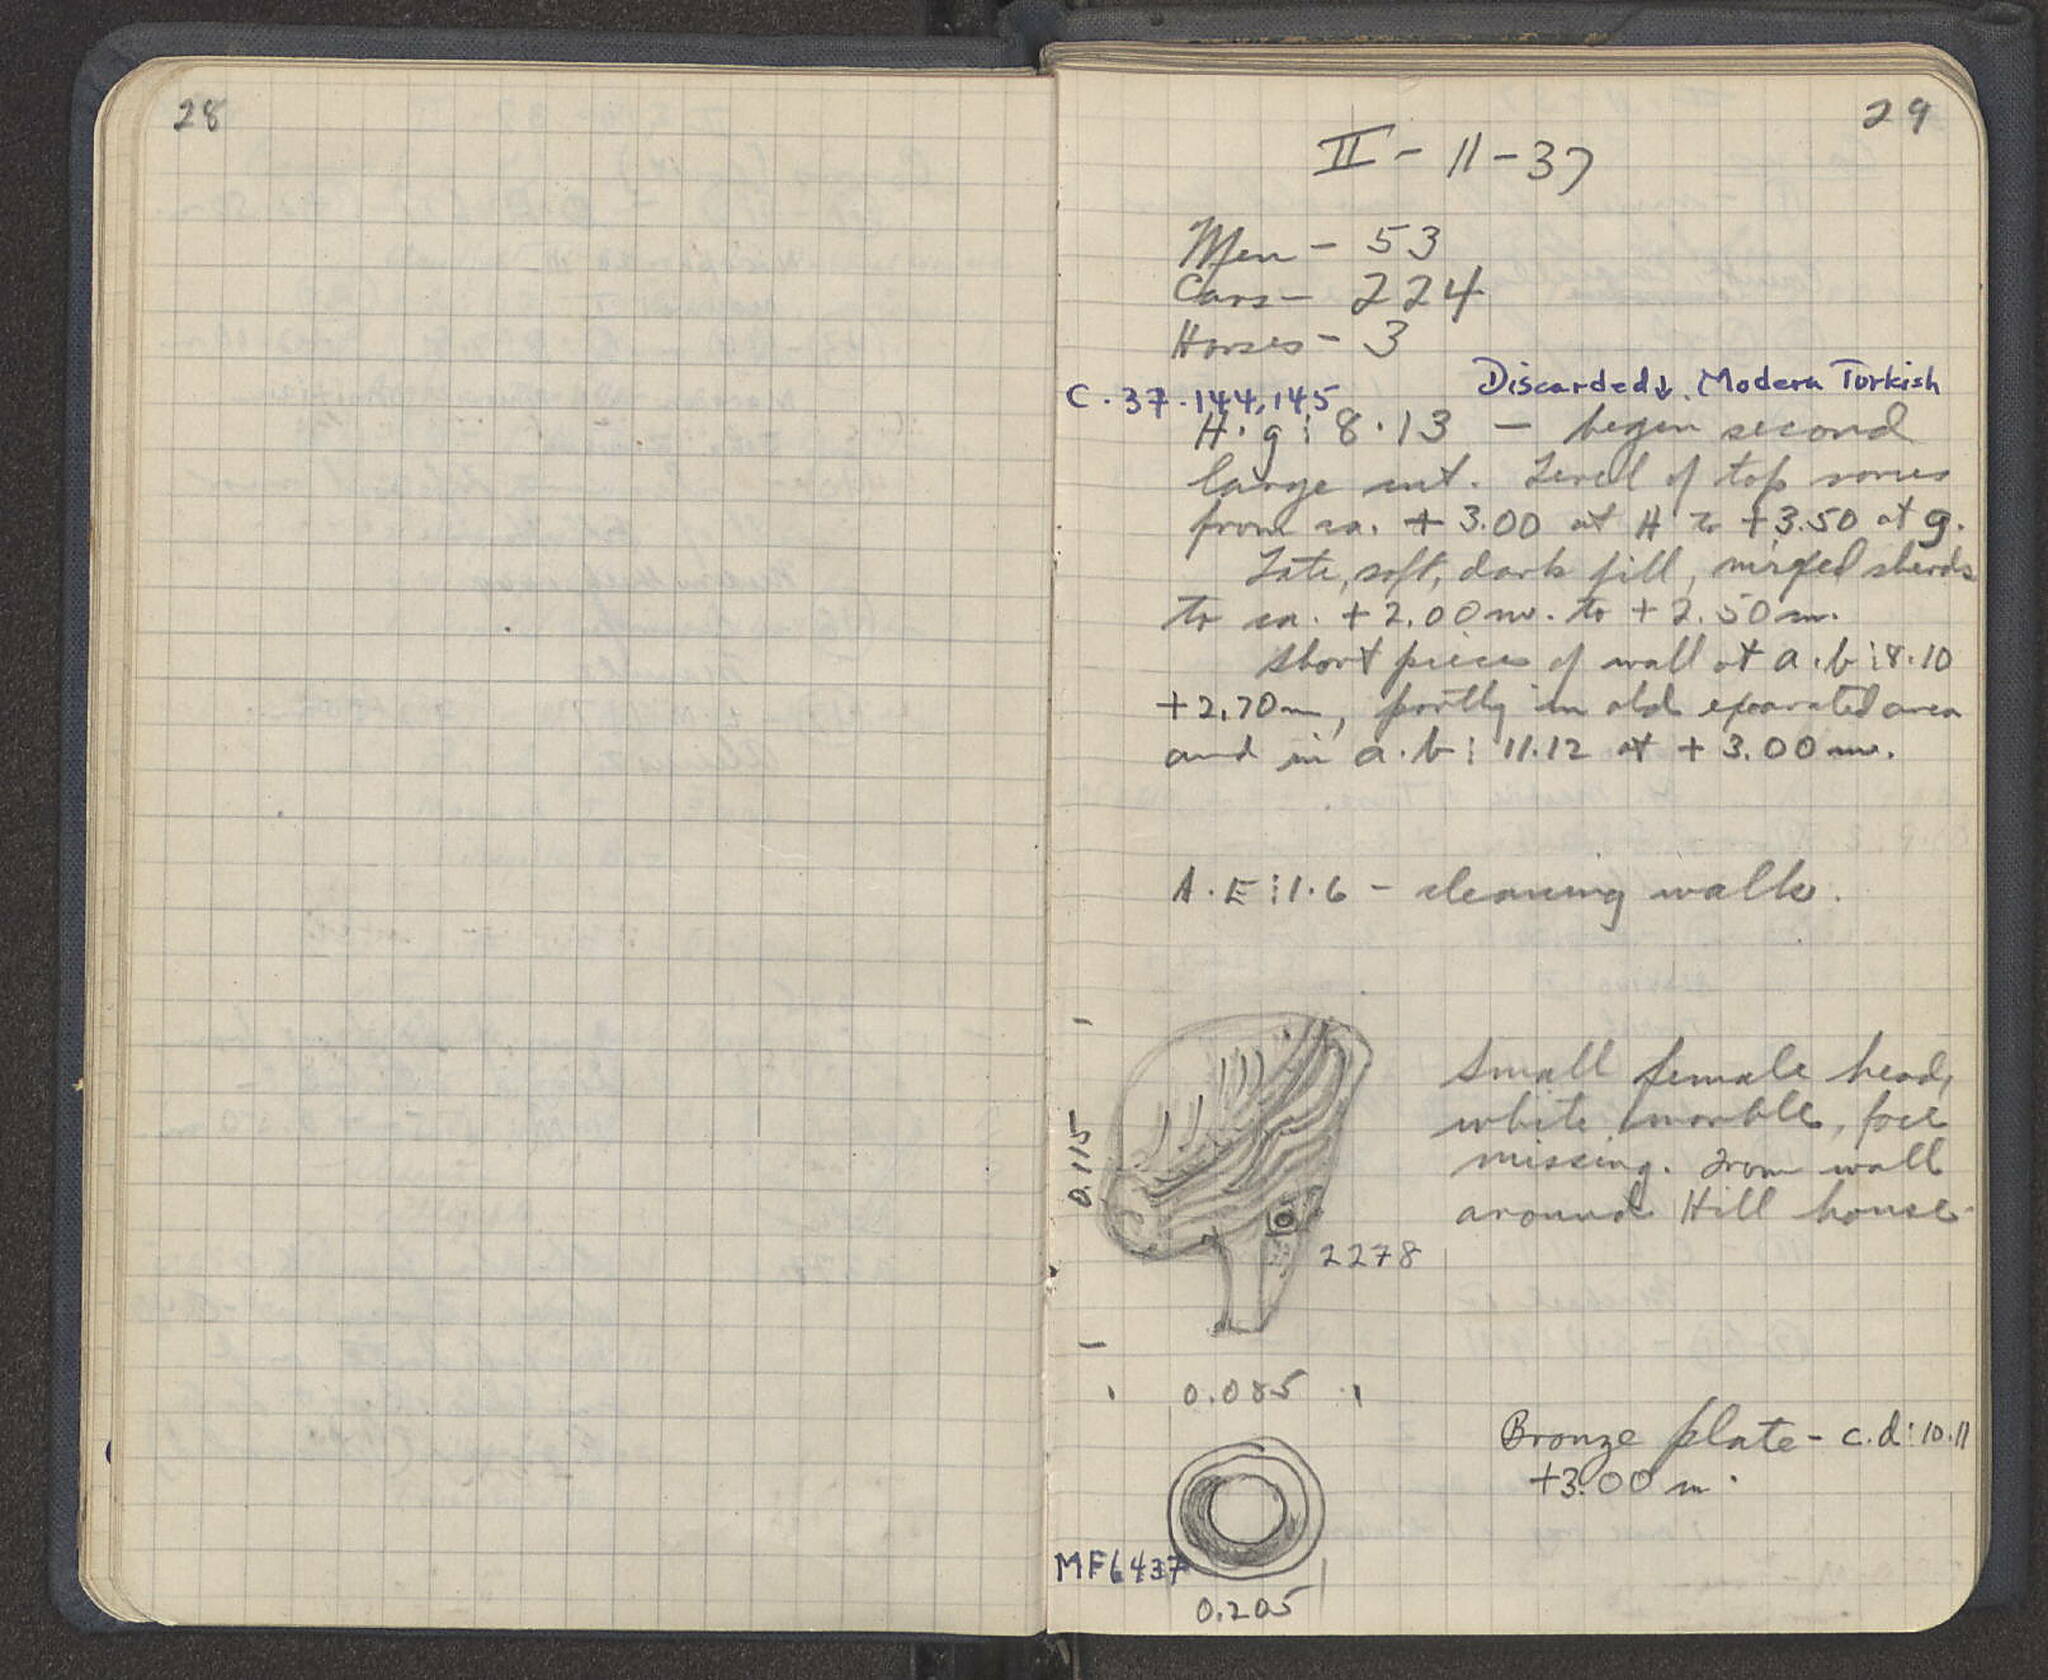 28
29
II - 11 - 37
Men - 53
Cars - 224
Horses - 3
Discarded↓. Modern Turkish
C.37.144,145
H.g:8.13 - begin second
large cut. Level of top varies
from ca. +3.00 at H to +3.50 at g.
Late, soft, dark fill, mixed sherds
to ca. +2.00 m. to +2.50 m.
Short pieces of wall at a.b:8.10
+2.70 m, partly in old excavated area
and in a.b:11.12 at +3.00 m.
A.E:1.6 - cleaning walls.
Small female head,
white marble, face
missing. From wall
around Hill house.
0.115
2278
0.085
Bronze plate - c.d:10.11
+3.00 m.
MF6437
0.205